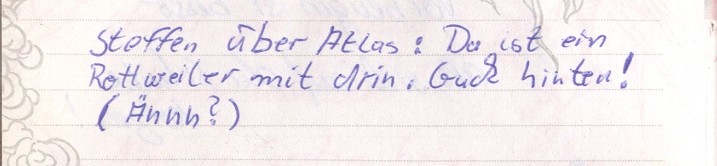 Steffen über Atlas: Da ist ein
Rottweiler mit drin. Guck hinten!
(Ähnh?)